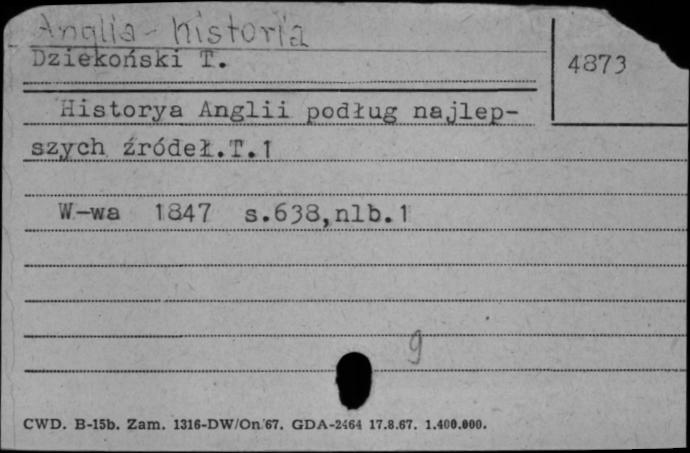 Anglia - historia
Dziekoński T.
4873
Historya Anglii podług najlep-
szych źródeł.T.1
W-wa 1847 s.638,nlb.1
9
CWD. B-15b. Zam. 1316-DW/On/67. GDA-2464 17.8.67. 1.400.000.